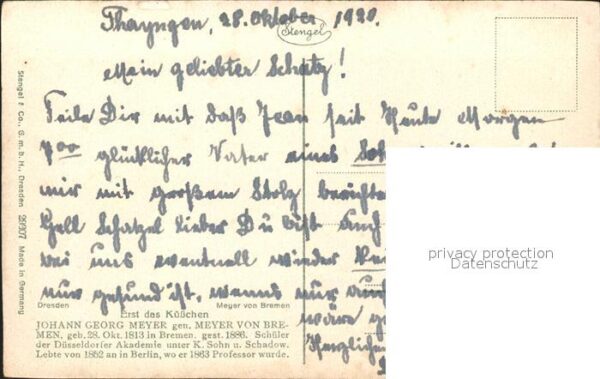 Thayngen, 28. Oktober 1920.
Stengel
Mein geliebter Schatz!
Teile Dir mit daß Jean seit Heute Morgen
7 00 glücklicher Vater eines
mir mit großem Stolz
Gell Schatzel lieber Du bist auch
bei uns eventuell wieder
nur gesund ist, wenns nur auch
wäre
Herzlichen
privacy protection
Datenschutz
Dresden Meyer von Bremen
Erst das Küßchen
JOHANN GEORG MEYER gen. MEYER VON BRE-
MEN, geb. 28. Okt. 1813 in Bremen. gest. 1886. Schüler
der Düsseldorfer Akademie unter K. Sohn u. Schadow.
Lebte von 1852 an in Berlin, wo er 1863 Professor wurde.
Stengel & Co., G. m. b. H., Dresden 29307 Made in Germany